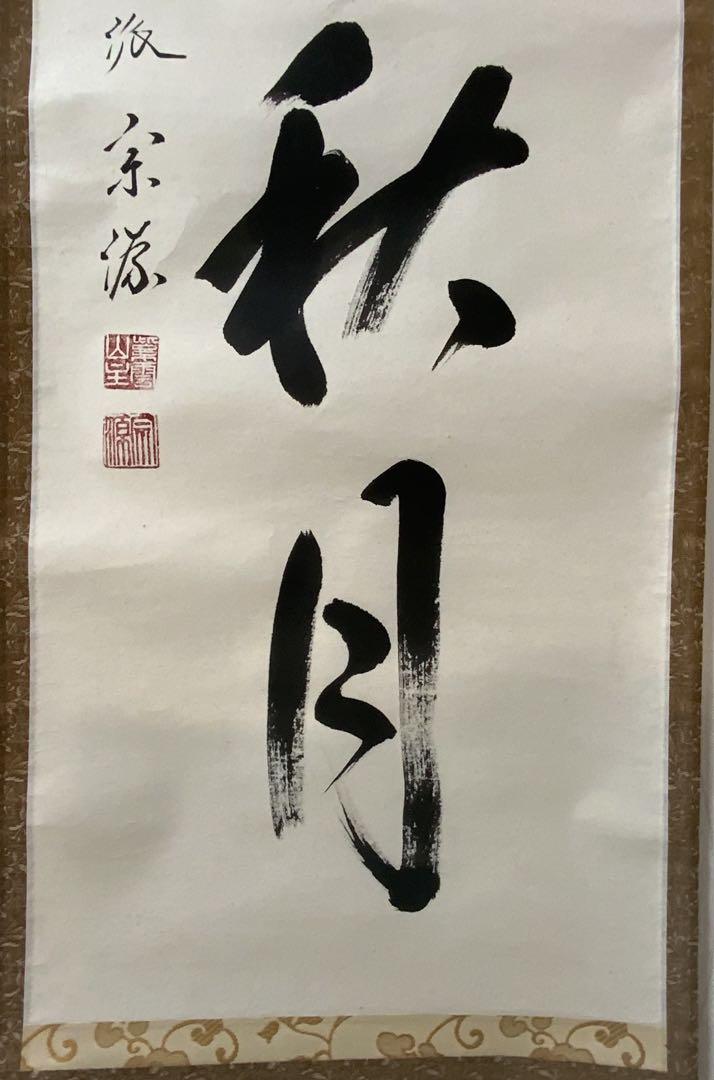 秋月
派 宗源
宗源